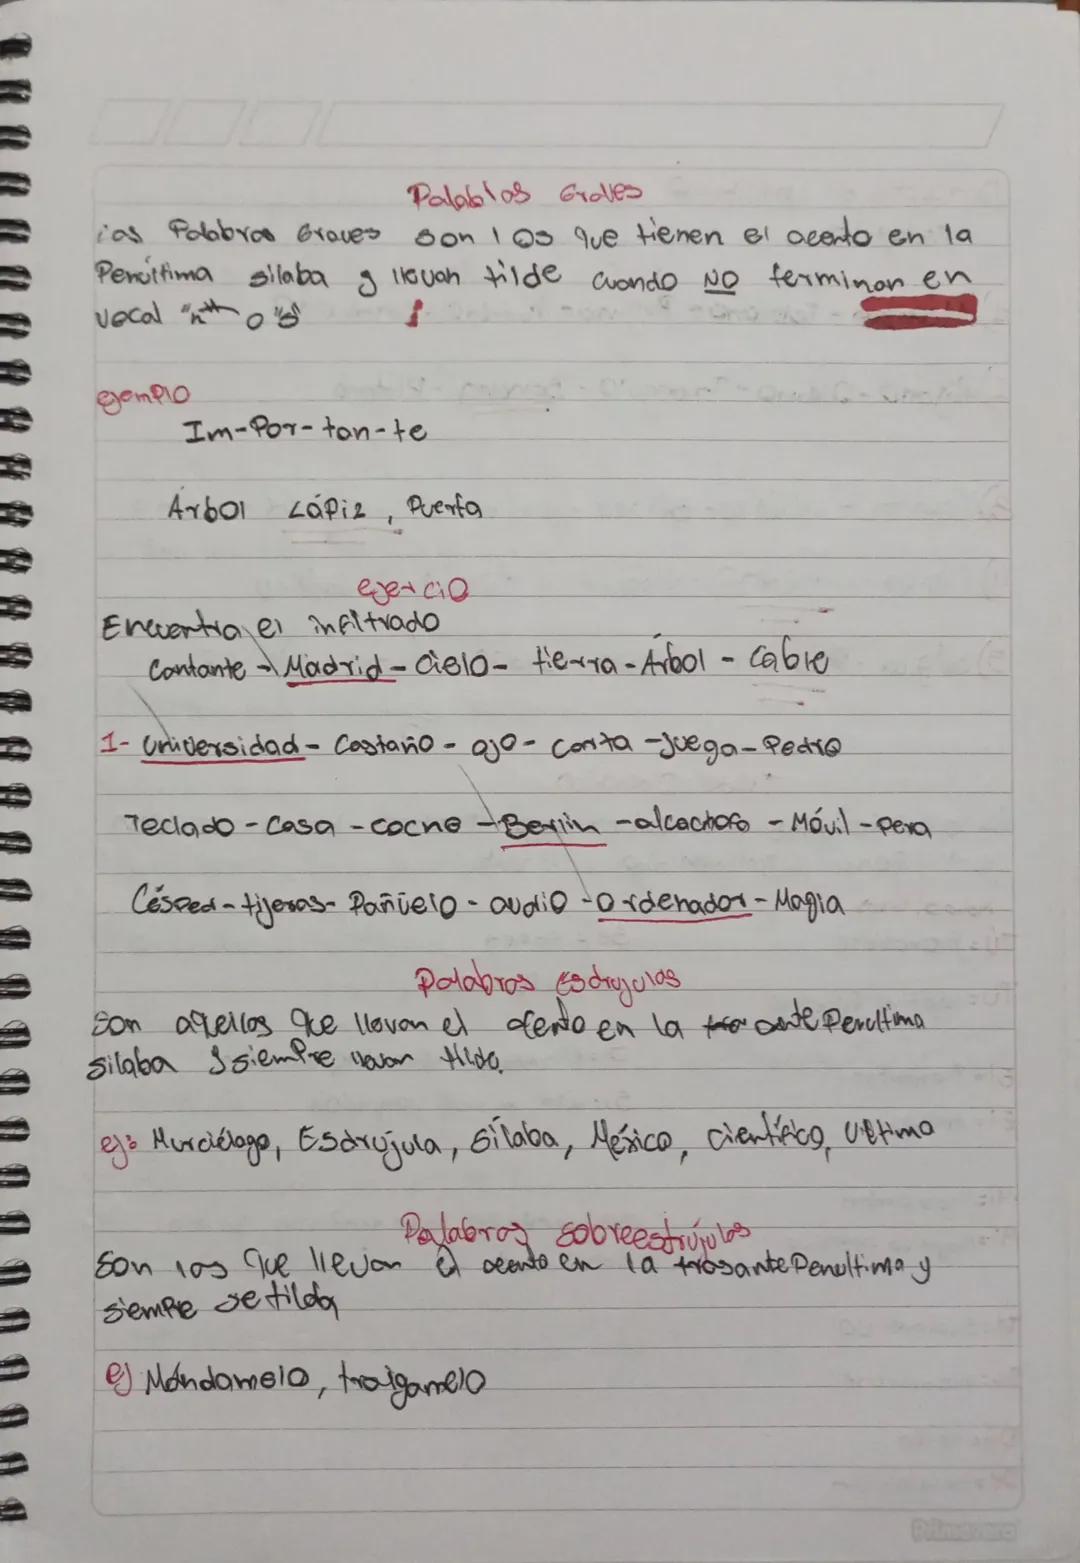 Palablas Graves
las Palabras Graves son las que tienen el acento en la
Penúltima silaba y llevan tilde cuando NO terminan en
vocal "n" o "s"
ejemplo
Im-Por-tan-te
Árbol Lápiz, Puerta
ejercio
Encuentra el infiltrado
Cantante - Madrid - Cielo - tierra - Árbol - Cable
1- Universidad - Castaño - ajo - carta - juega - Pedro
Teclado - Casa - coche - Berlin - alcachofa - Móvil - pera
Césped - tijeras - Pañuelo - audio - Ordenador - Magia
Palabras Esdrujulas
Son aquellas que llevan el acento en la ante Penultima
silaba y siempre llevan tilde.
ej: Murciélago, Esdrújula, sílaba, México, científico, Ultimo
Palabras sobreestrújulas
Son las que llevan el acento en la trasante Penultima y
siempre se tilda
ej Mándamelo, traigamelo
Primavera